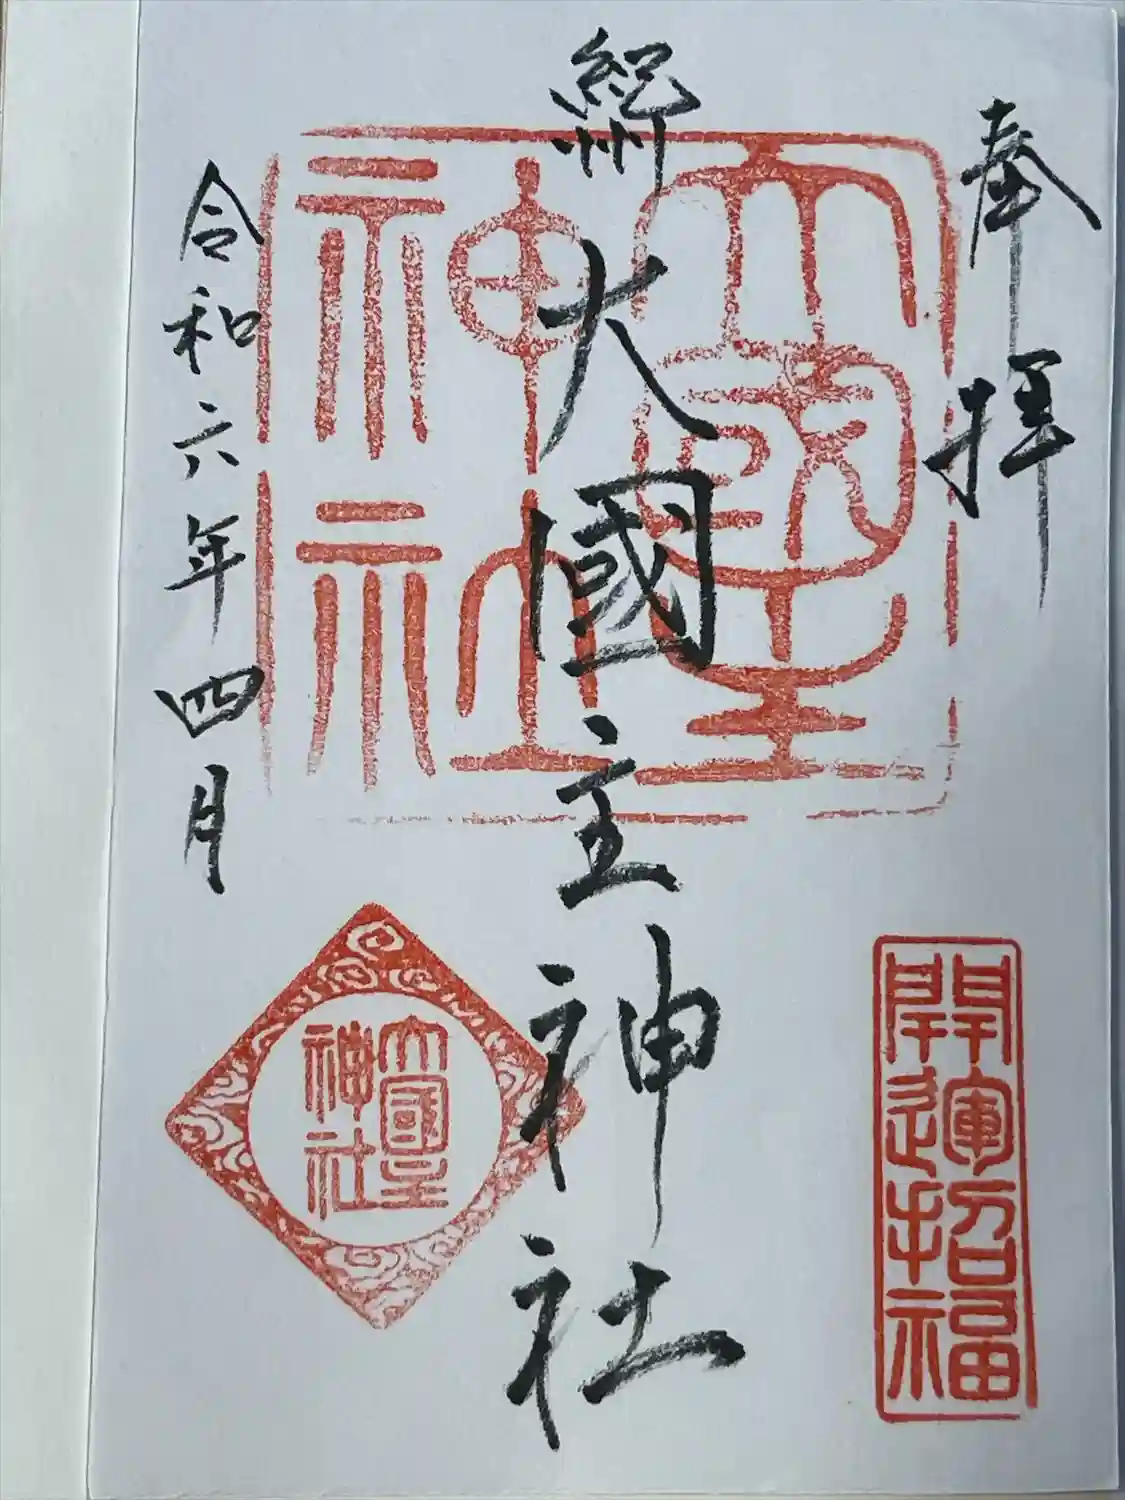 奉拝
紀州
大國主神社
令和六年四月
大國主
神社
大國主
神社
開運招福